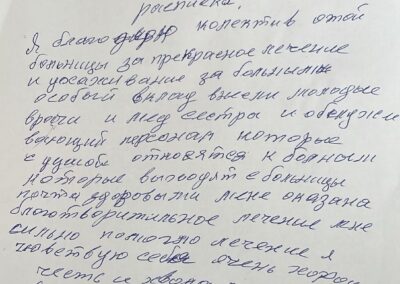 расписка.
Я благодарю колектив этой
больницы за прекрасное лечение
и ухаживание за больными
особый вклад внесли молодые
врачи и мед сестры и обслужи
вающий персонал которые
с душой относятся к больным
которые выходят с больницы
почти здоровыми мене оказана
благотворительное лечение мне
сильно помогло лечение я
чювствую себя очень хорошо
честь и хвала